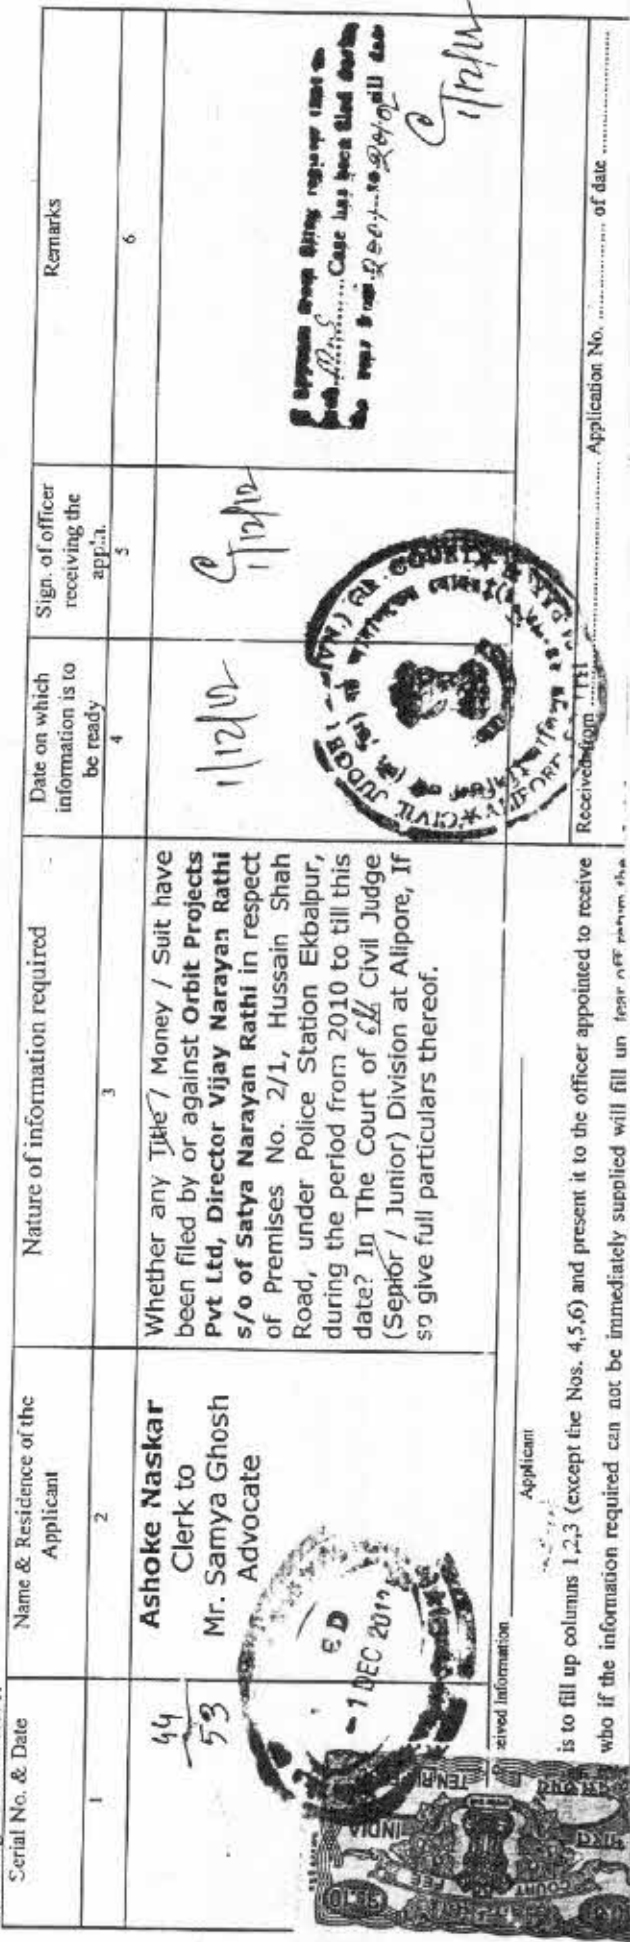 Serial No. & Date
Name & Residence of the
Applicant
Nature of information required
Date on which
information is to
be ready
Sign. of officer
receiving the
appln.
Remarks
1
2
3
4
5
6
44
53
Ashoke Naskar
Clerk to
Mr. Samya Ghosh
Advocate
Whether any Title / Money / Suit have
been filed by or against Orbit Projects
Pvt Ltd, Director Vijay Narayan Rathi
s/o of Satya Narayan Rathi in respect
of Premises No. 2/1, Hussain Shah
Road, under Police Station Ekbalpur,
during the period from 2010 to till this
date? In The Court of 6th Civil Judge
(Senior / Junior) Division at Alipore, If
so give full particulars thereof.
1/12/12
1/12/12
appears from filing register that no
such Case has been filed during
the year from to till date
1/12/12
- 1 DEC 2012
CIVIL JUDGE COURT
ALIPORE
INDIA
TEN RUPEES
COURT FEE
Rs.10
eived Information
Applicant
Received from Application No. of date
is to fill up columns 1,2,3 (except the Nos. 4,5,6) and present it to the officer appointed to receive
who if the information required can not be immediately supplied will fill un tear off return the